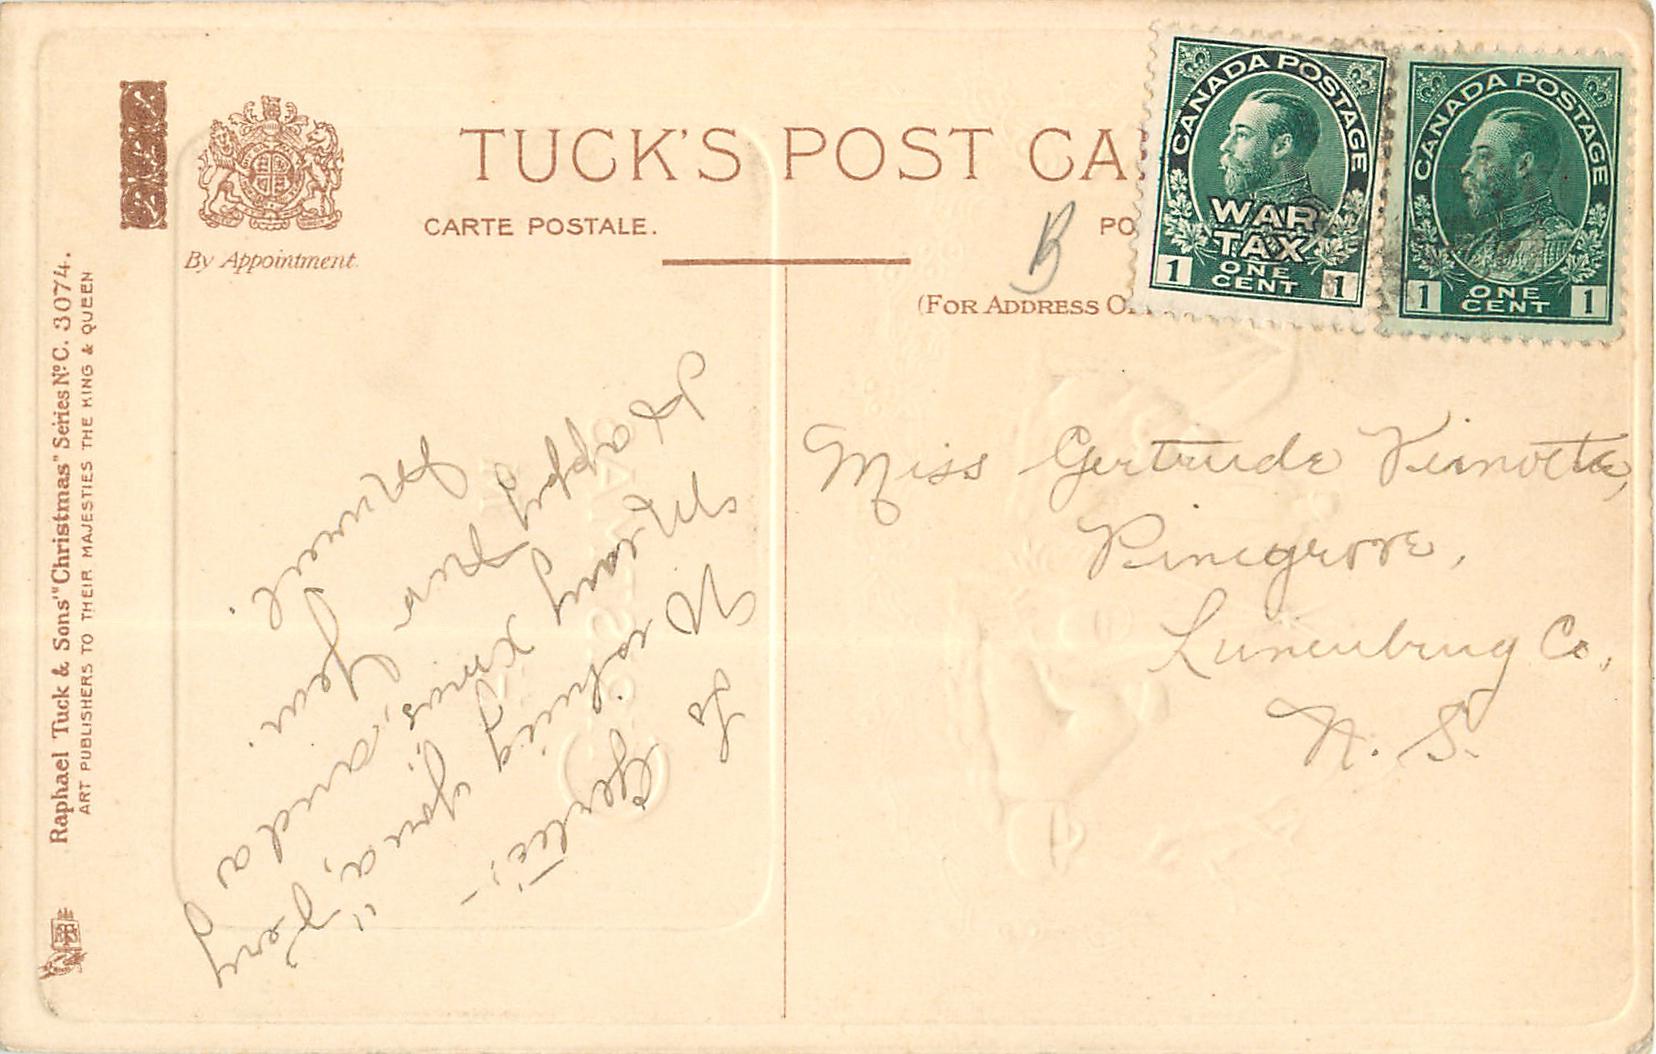 TUCK'S POST CA
CARTE POSTALE.
PO
By Appointment
(FOR ADDRESS O
Raphael Tuck & Sons' "Christmas" Series No C. 3074.
ART PUBLISHERS TO THEIR MAJESTIES THE KING & QUEEN
CANADA POSTAGE
WAR
TAX
ONE
CENT
1 1
CANADA POSTAGE
ONE
CENT
1 1
B
Miss Gertrude
Pinegrove,
Lunenburg Co,
N. S.
To Gertie;-
Wishing you a, "Very
Merry Xmas, and a
Happy New Year.